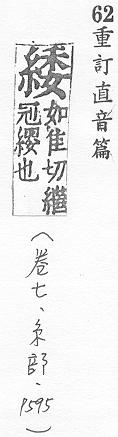 62重訂直音篇
緌
如隹切繼
冠纓也
(卷七、糸部、P595)